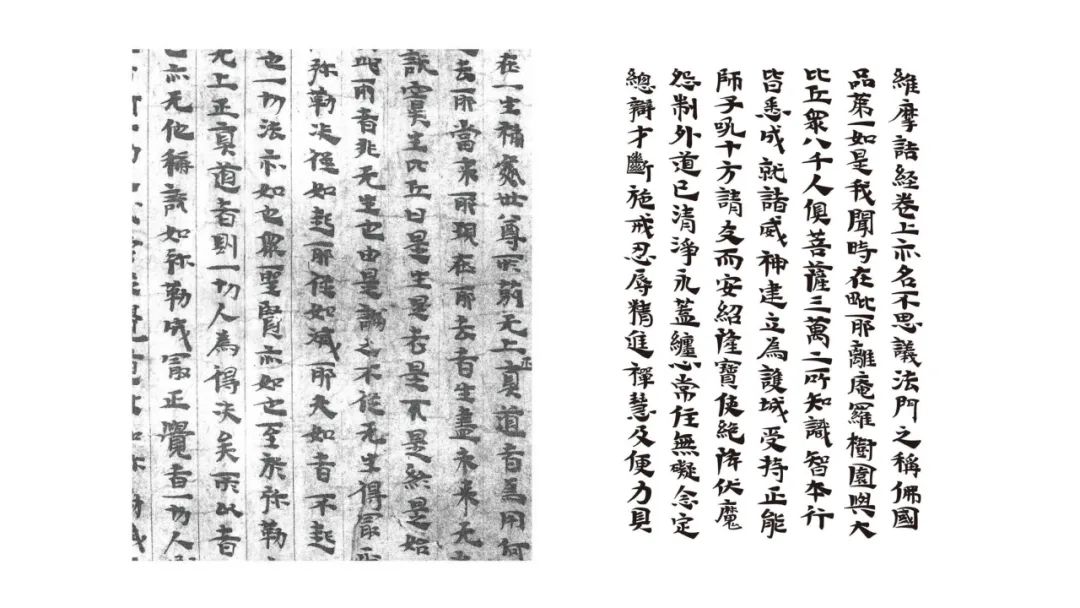 維摩詰経卷上亦名不思議法門之稱佛國
品第一如是我聞時在毗耶離庵羅樹園與大
比丘眾八千人俱菩薩三萬二所知識智本行
皆悉成就諸威神建立為護城受持正能
師子吼十方請友而安紹隆寶使絶降伏魔
怨制外道已清淨永蓋纏心常住無礙念定
總辯才斷施戒忍辱精進禪慧及便力具
在一生補處世尊所莂无上正真道者為用何
去耶當來耶現在耶去者生盡未來无
生比丘曰是生是老是是終是始
此兩者非无生也由是論之不從无生得冣正
弥勒决從如起耶從如滅耶夫如者不起
也一切法亦如也眾聖賢亦如也至於弥勒
无上正真道者則一切人為得决矣所以者
亦无他稱說如弥勒成冣正覺者一切人